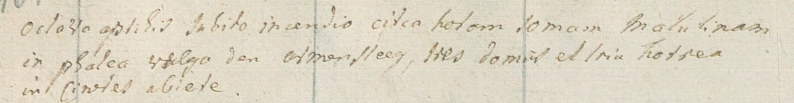 octavo aprilis subito incendio circa horam 10mam matutinam
in platea vulgo den armensteeg, tres domus et tria horrea
in cineres abiere.